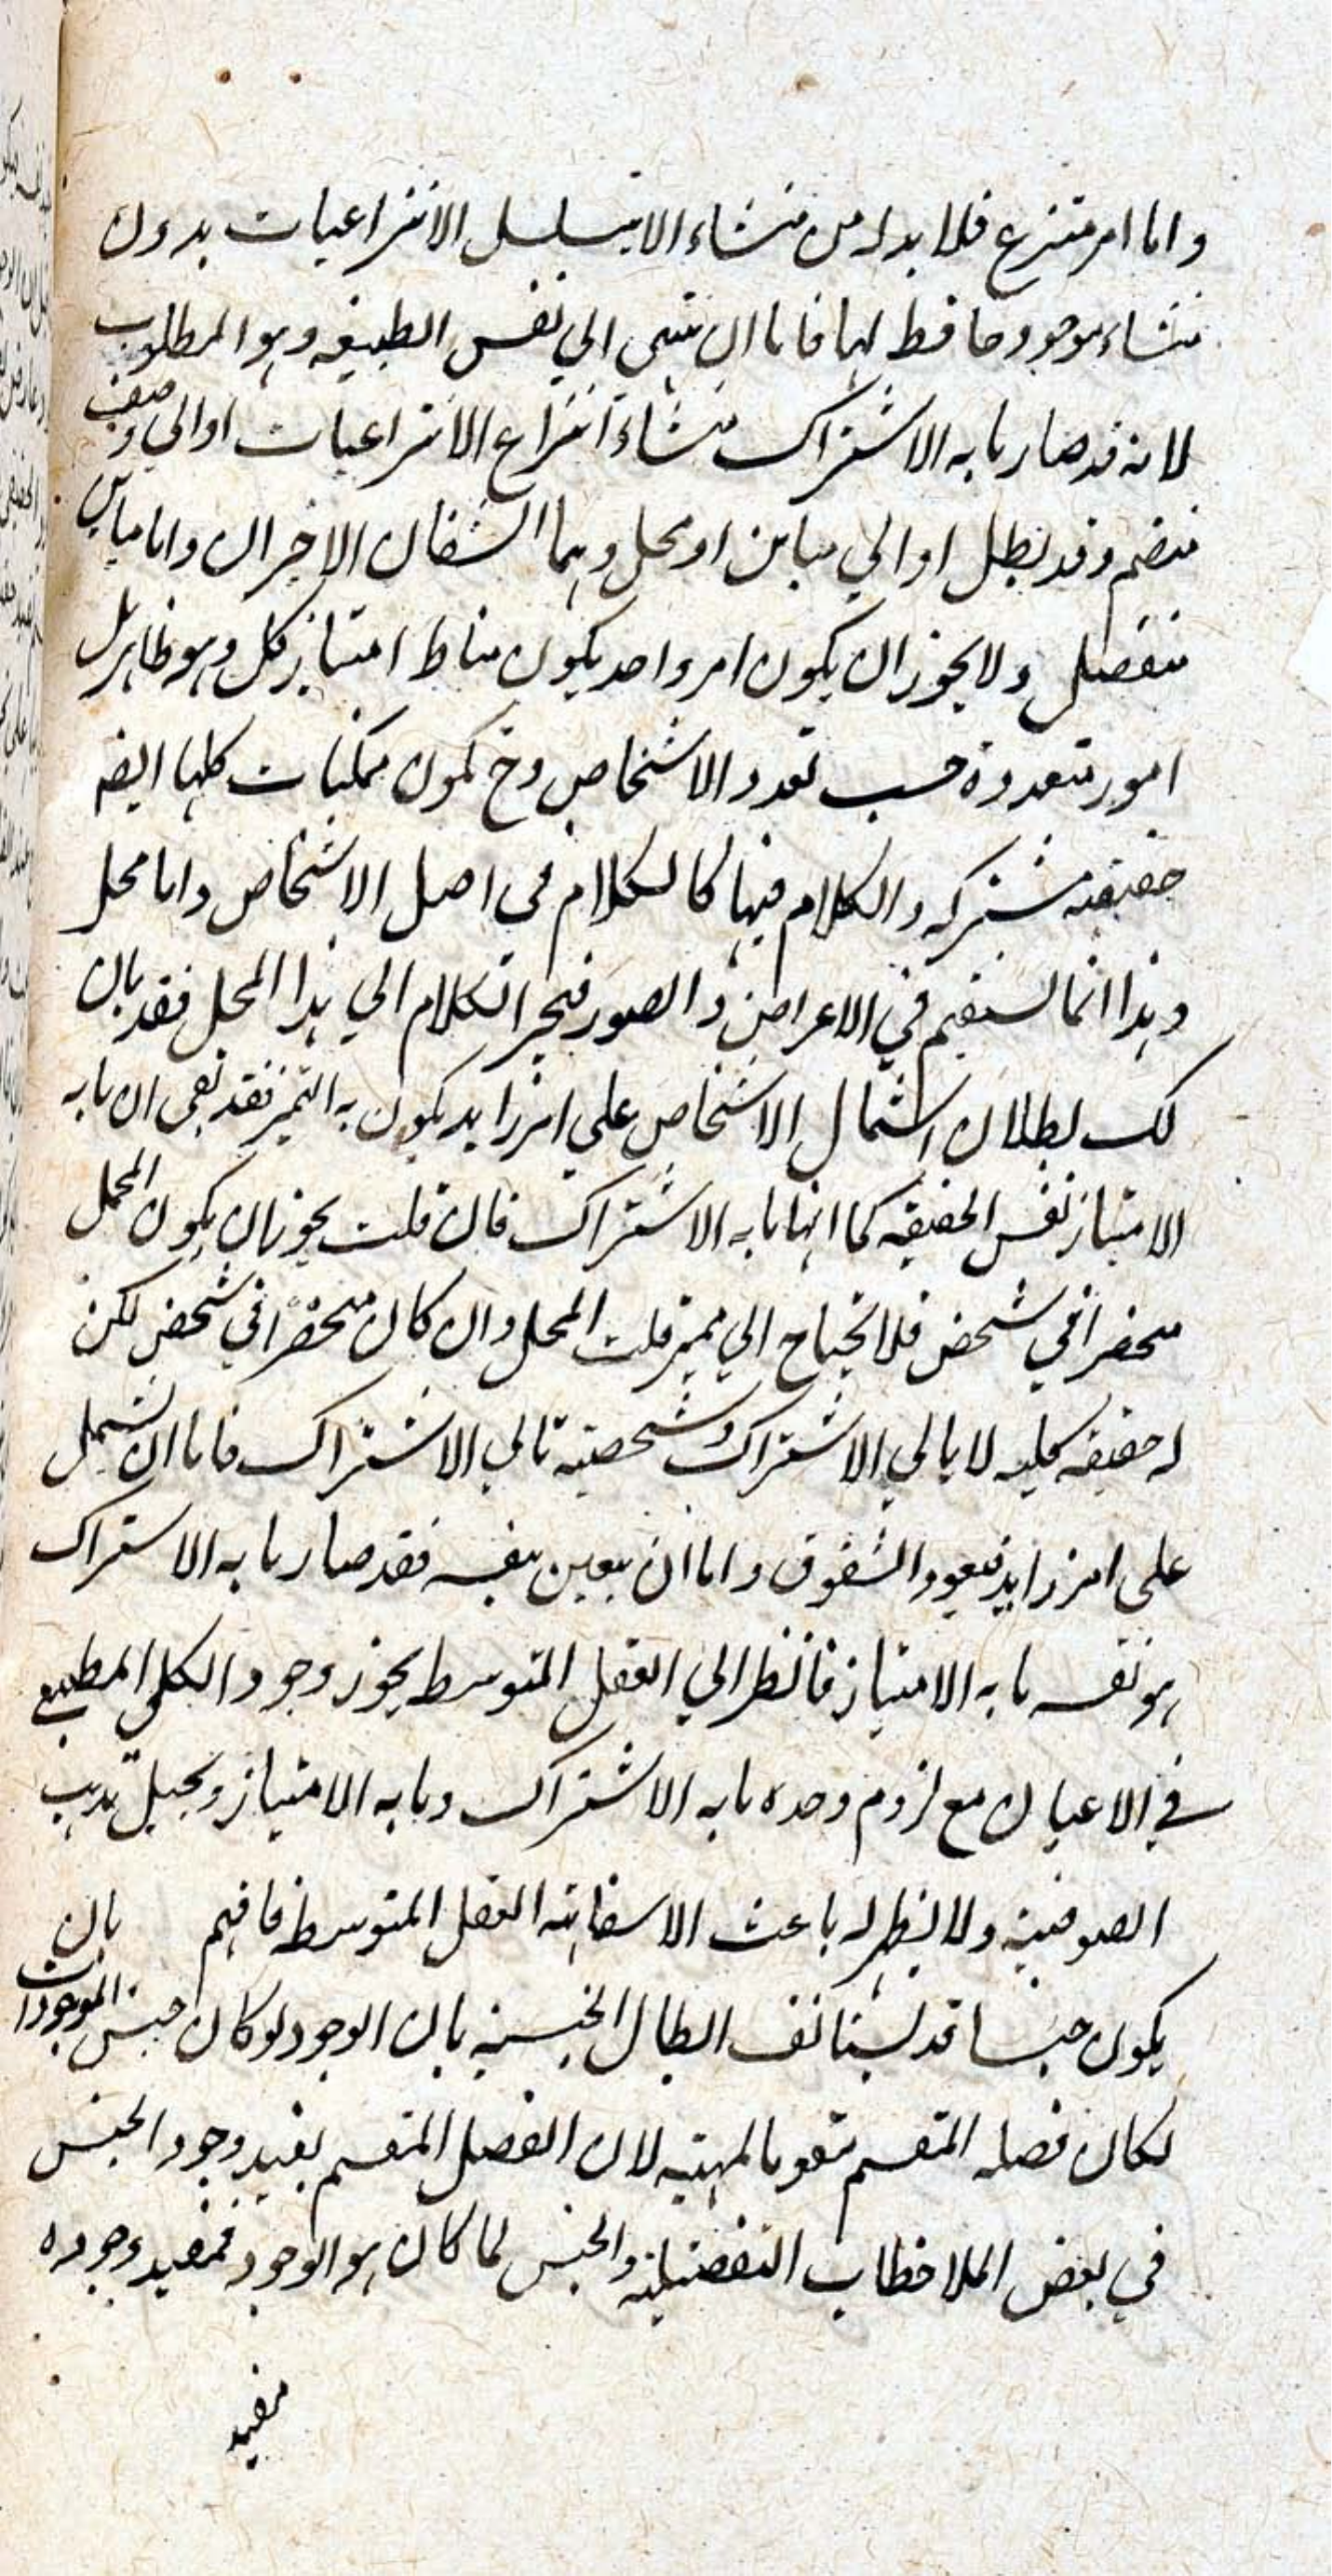 واما امر منتزع فلا بد له من منشاء الا يتسلسل الانتزاعيات بدون
منشاء موجود حافظ لها فاما ان ينتهى الي نفس الطبيعة وهو المطلوب
لانه قد صار ما به الاشتراك منشاء انتزاع الانتزاعيات او الي وصف
منضم وقد بطل او الي مباين او محل وهما الشقان الاخيران واما مباين
منفصل ولا يجوز ان يكون امر واحد يكون مناط امتياز كل وهو ظاهر بل
امور متعددة حسب تعدد الاشخاص وح تكون ممكنات كلها ايضا
حقيقة مشتركه والكلام فيها كالكلام في اصل الاشخاص واما محل
وهذا انما يستقيم في الاعراض والصور فيجر الكلام الي هذا المحل فقد بان
لك بطلان اشتمال الاشخاص علي امر زايد يكون به التميز فقد بقى ان ما به
الامتياز نفس الحقيقه كما انها ما به الاشتراك فان قلت يجوز ان يكون المحل
منحصرا في شخص فلا يحتاج الي مميز قلت المحل وان كان منحصرا في شخص لكن
له حقيقه كليه لا يابي الاشتراك وشخصيته تابي الاشتراك فاما ان يشتمل
على امر زايد فيعود الشقوق واما ان يتعين بنفسه فقد صار ما به الاشتراك
هو نفسه ما به الامتياز فالنظر الي العقل المتوسط يجوز وجود الكلي الطبيعي
في الاعيان مع لزوم وحده ما به الاشتراك وما به الامتياز ويجعل مذهب
الصوفية ولا ينظر له باعث الاستعانة العقل المتوسط فافهم بان
يكون جنسا قد يستانف ابطال الجنسية بان الوجود لو كان جنس الموجودات
لكان فصله المقسم مقوما لمهيته لان الفصل المقسم يفيد وجود الجنس
في بعض الملاحظات التفصيلية والجنس لما كان هو الوجود فمفيد وجوده
مفيد